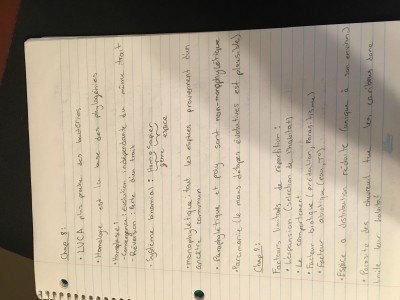 Chap 8:
• LUCA plus proche des bactéries
• Homologie est la base des phylogénies
• Homoplasie:
- Convergence: évolution indépendante du même trait
- Réversion: Perte d'un trait
• Système binomial: Homo sapien
genre espèce
• Monophylétique tout les espèces proviennent d'un
ancêtre commun
• Paraphylétique et poly sont non-monophylétique
• Parcimonie (le moins d'étapes évolutives est plausible)
Chap 9:
Facteurs limitants de répartition:
• L'expansion (sélection de l'habitat)
• Le comportement
• Facteur biotique (prédation, Parasitisme)
• Facteur abiotique (eau, T°)
• Espèce à distribution réduite (unique à son environ)
• Parasite des chevreuil tue les caribous donc
limite leur habitat